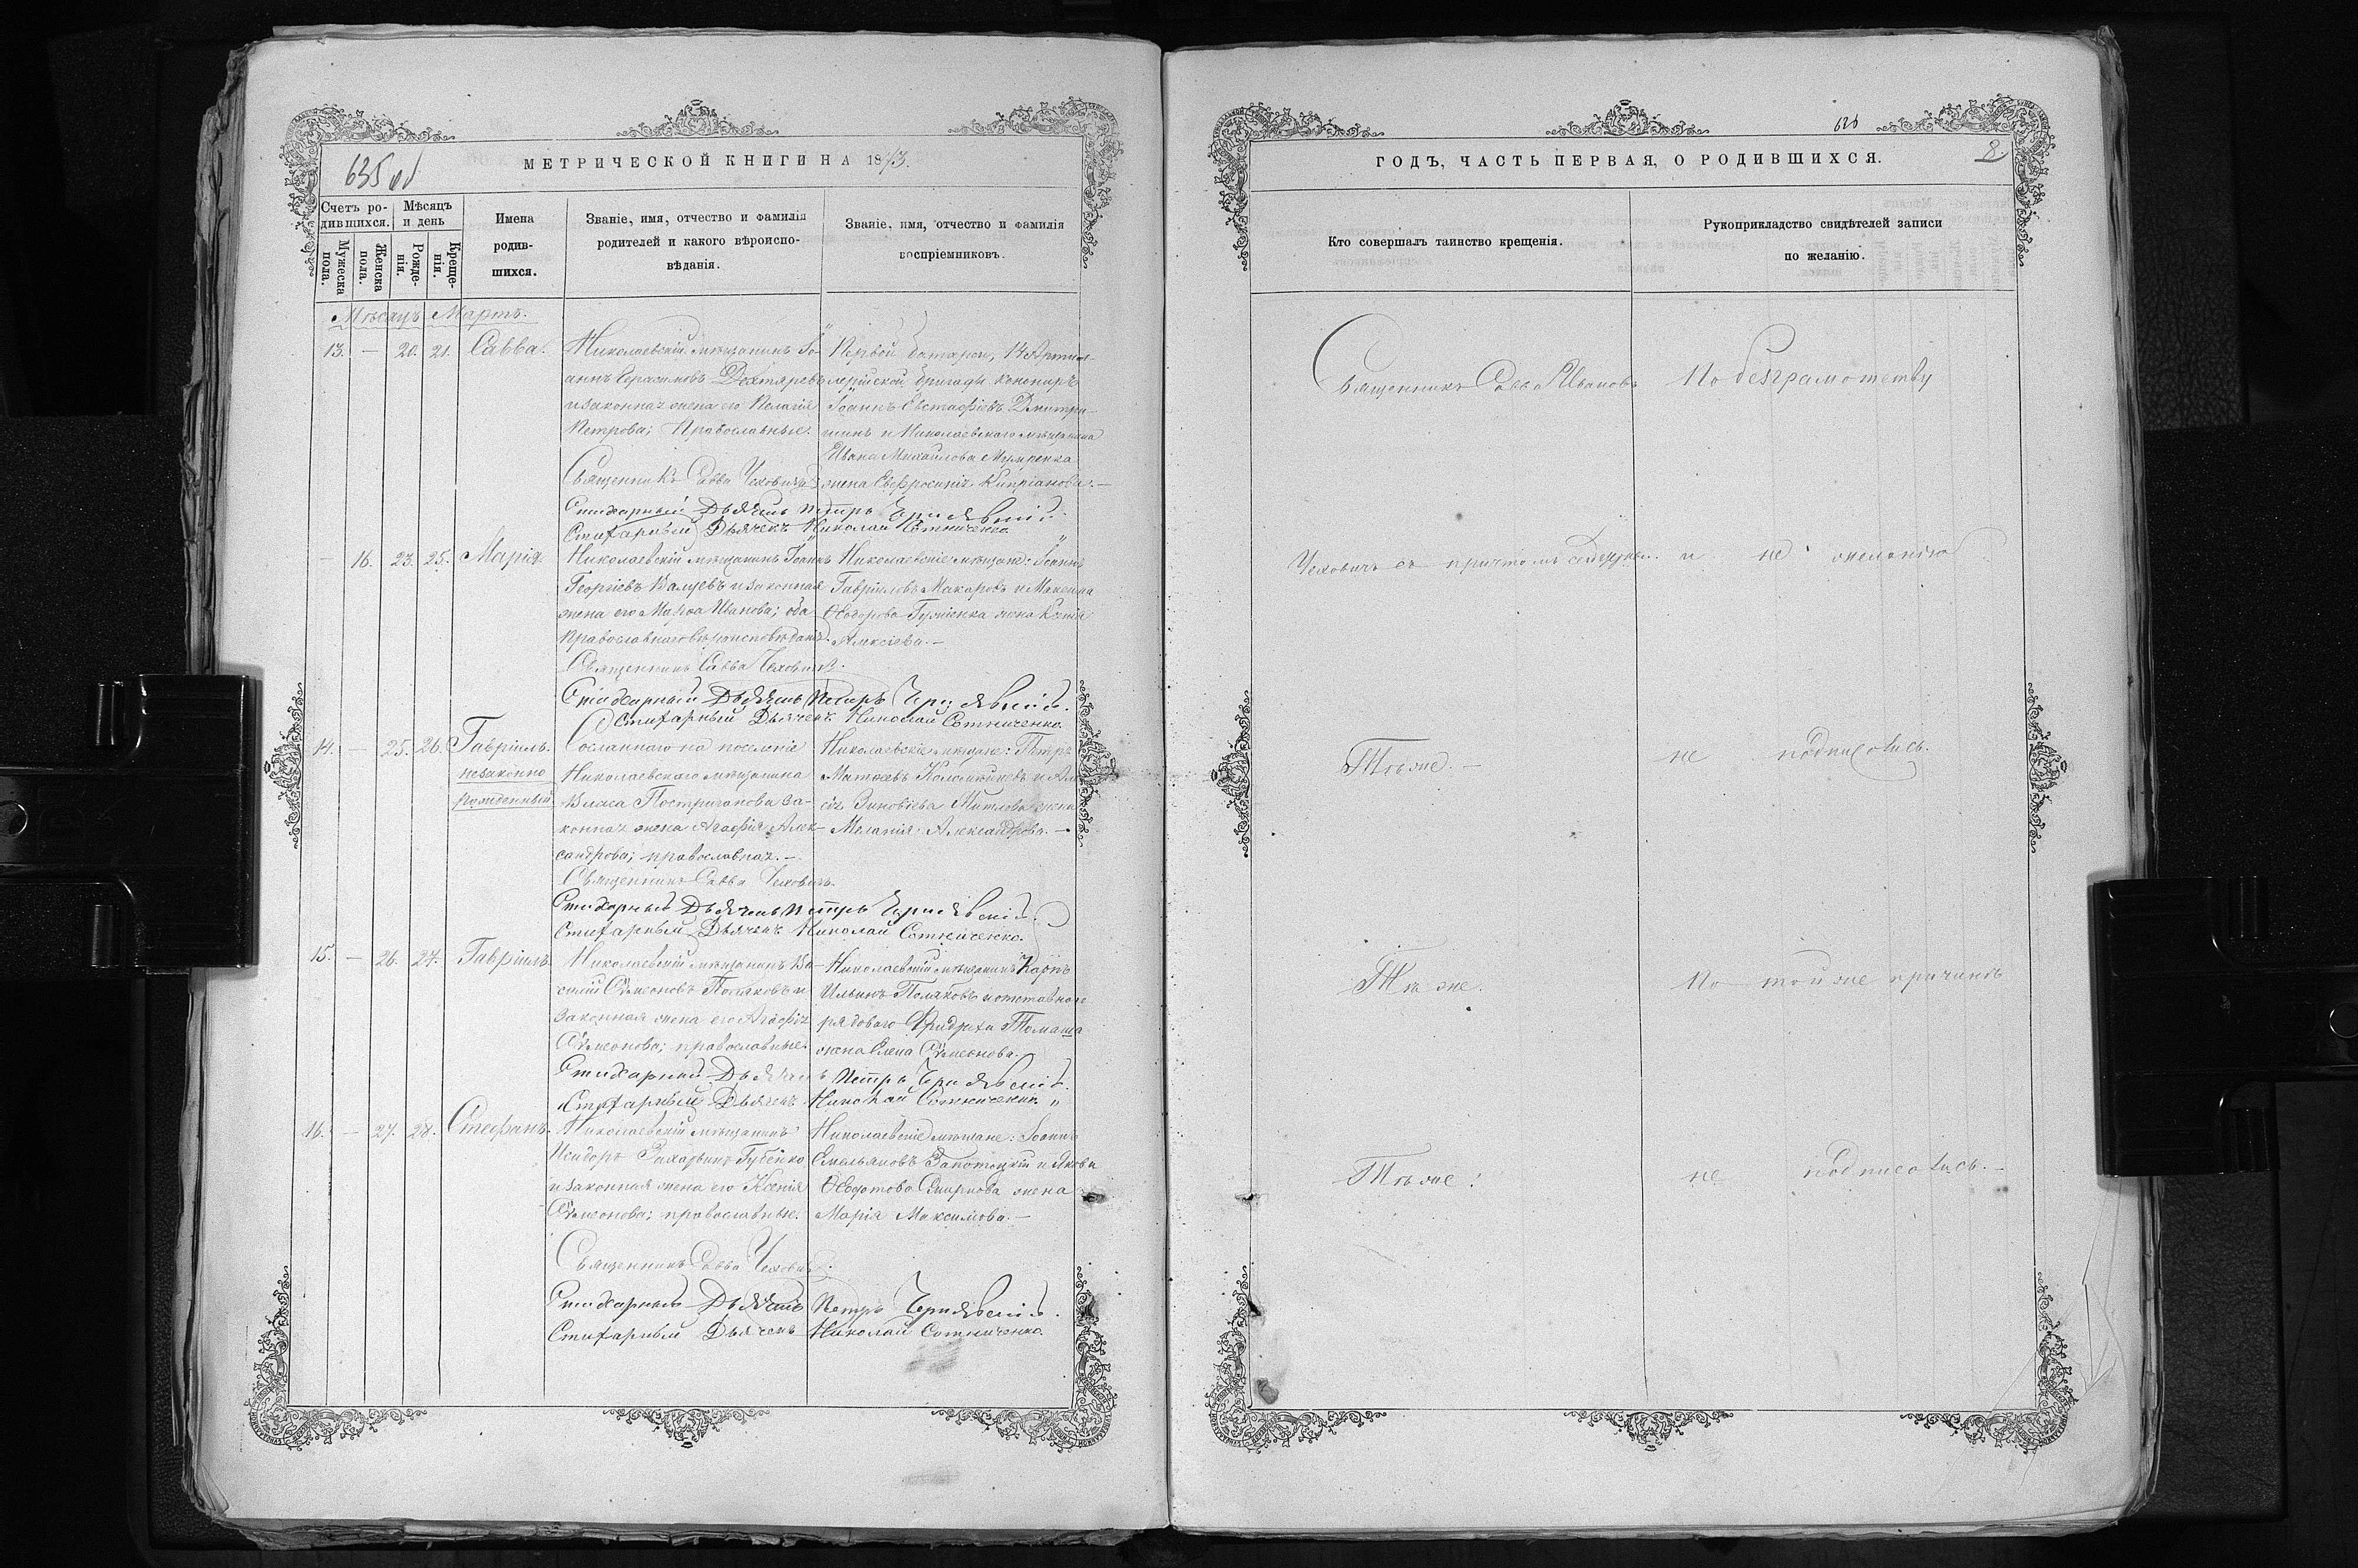 635 об
МЕТРИЧЕСКОЙ КНИГИ НА 1873.
Счетъ ро-
дившихся.
Мѣсяцъ
и день
Мужеска пола.
Женска пола.
Рожде-
нія.
Креще-
нія.
Имена
родив-
шихся.
Званіе, имя, отчество и фамилія
родителей и какого вѣроиспо-
вѣданія.
Званіе, имя, отчество и фамилія
воспріемниковъ.
Мѣсяцъ Мартъ.
13. — 20. 21. Савва.
Николаевскій мѣщанинъ Іо-
аннъ Герасимовъ Дехтяревъ
и законная жена его Пелагія
Петрова; Православные.
Первой батареи, 14 Артил-
лерійской бригады канониръ
Іоаннъ Евстафіевъ Дмитри-
шинъ и Николаевскаго мѣщанина
Ивана Михайлова
жена Евфросинія Кипріанова. —
Священникъ Савва Чеховичъ
Стихарный Дьячекъ Петръ Чернявскій.
Стихарный Дьячекъ Николай Сотниченко
— 16. 23. 25. Марія.
Николаевскій мѣщанинъ Іоаннъ
Георгіевъ и законная
жена его Марѳа Иванова; оба
Православнаго вѣроисповѣданія.
Николаевскіе мѣщане: Іоаннъ
Гавріиловъ Макаровъ и Максима
Ѳеодорова жена Ксенія
Алексіева. —
Священникъ Савва Чеховичъ.
Стихарный Дьячекъ Петръ Чернявскій.
Стихарный Дьячекъ Николай Сотниченко.
14. — 25. 26. Гавріилъ.
незаконно
рожденный
Сосланнаго на поселеніе
Николаевскаго мѣщанина
Власа Постриганова за-
конная жена Агафія Алек-
сандрова; православная. —
Николаевскіе мѣщане: Петръ
Матѳеевъ и Але-
сія Зиновіева жена
Меланія Александрова. —
Священникъ Савва Чеховичъ.
Стихарный Дьячекъ Петръ Чернявскій.
Стихарный Дьячекъ Николай Сотниченко.
15. — 26. 27. Гавріилъ.
Николаевскій мѣщанинъ Ва-
силій Сѵмеоновъ Поляковъ и
законная жена его Агафія
Сѵмеонова; православные.
Николаевскій мѣщанинъ Карпъ
Ильинъ Поляковъ и отставнаго
рядоваго Фридриха Томаша
жена Елена Сѵмеонова. —
Стихарный Дьячекъ Петръ Чернявскій.
Стихарный Дьячекъ Николай Сотниченко „
16. — 27. 28. Стефанъ.
Николаевскій мѣщанинъ
Исидоръ Захарьинъ Губенко
и законная жена его Ксенія
Сѵмеонова; православные.
Николаевскіе мѣщане: Іоаннъ
Емельяновъ Запотоцкій и Якова
Ѳеодотова Смирнова жена
Марія Максимова. —
Священникъ Савва Чеховичъ.
Стихарный Дьячекъ Петръ Чернявскій.
Стихарный Дьячекъ Николай Сотниченко.
626
ГОДЪ, ЧАСТЬ ПЕРВАЯ, О РОДИВШИХСЯ.
8.
Кто совершалъ таинство крещенія.
Рукоприкладство свидѣтелей записи
по желанію.
Священникъ Савва Ивановъ
По безграмотству
Чеховичъ съ причтомъ
и не желанію
Тѣ же. —
не подписались.
Тѣ же.
По той же причинѣ
Тѣ же:
не подписались. —